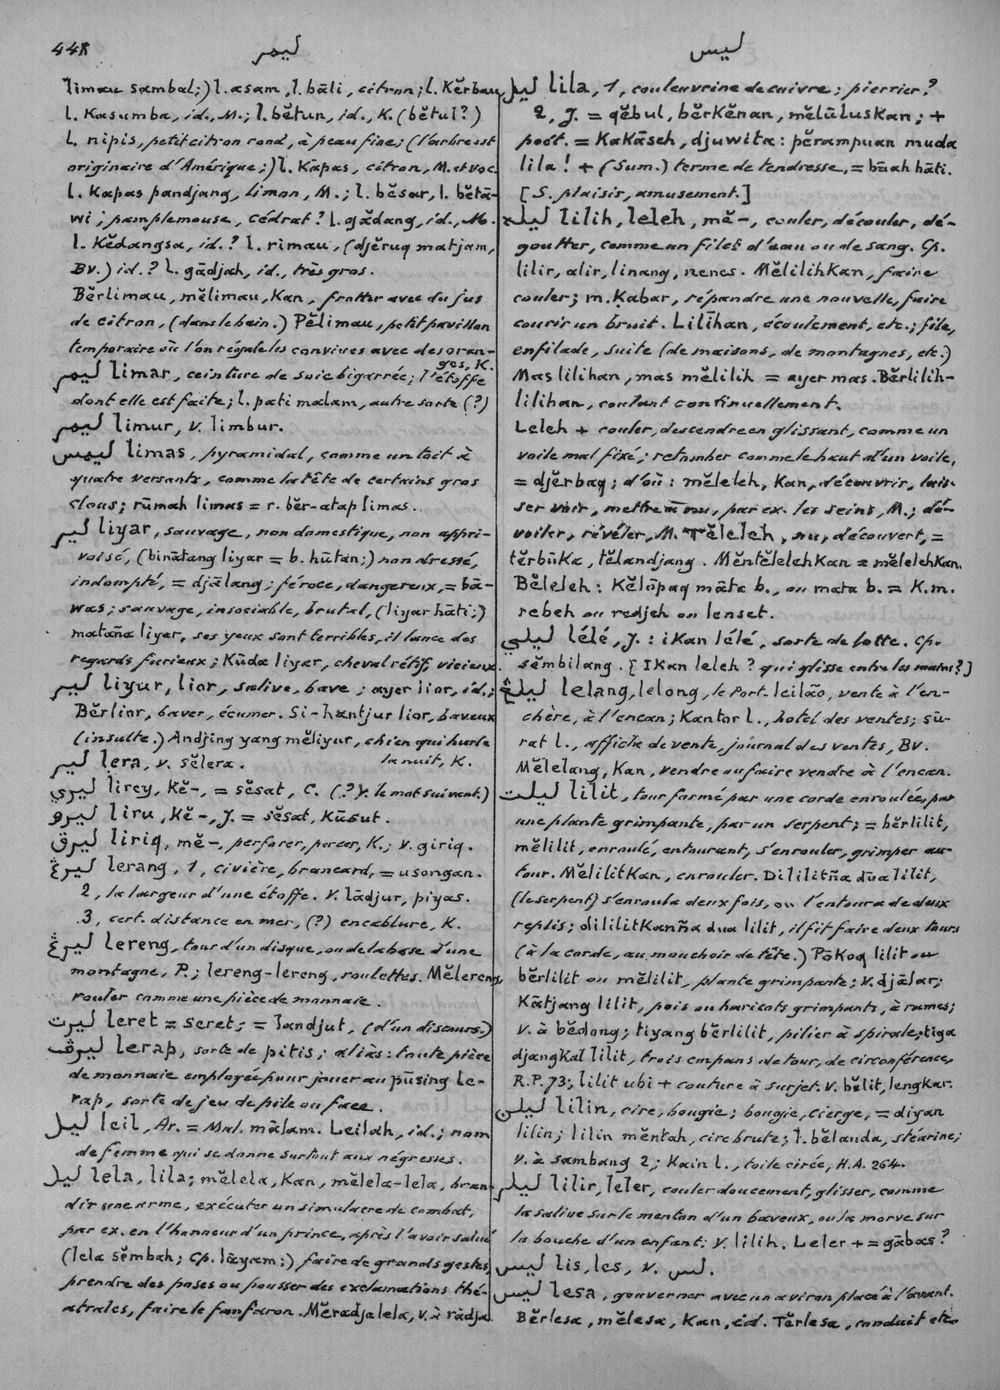 448
ليمر
ليس
limau sambal;) l. asam, l. bāli, citron; l. Kĕrbau,
l. Kasumba, id., M.; l. bĕtun, id., K. (bĕtul?)
l. nipis, petit citron rond, à peau fine; (l'arbre est
originaire d'Amérique;) l. Kāpas, citron, M. et voc.
l. Kapas pandjang, limon, M.; l. bĕsar, l. bĕtā-
wi; pamplemouse, cédrat? l. gădang, id., M.
l. Kĕdangsa, id.? l. rimau, (djĕruq matjam,
BV.) id.? l. gādjah, id., très gros.
Bĕrlimau, mĕlimau, Kan, frotter avec du jus
de citron, (dans le bain.) Pĕlimau, petit pavillon
temporaire où l'on régale les convives avec des oran-
ges, K.
ليمر limar, ceinture de soie bigarrée; l'étoffe
dont elle est faite; l. pati malam, autre sorte (?)
ليمر limur, v. limbur.
ليمس limas, pyramidal, comme un toit à
quatre versants, comme la tête de certains gros
clous; rūmah limas = r. bĕr-atap limas.
لير liyar, sauvage, non domestique, non appri-
voisé, (binātang liyar = b. hūtan;) non dressé,
indompté, = djālang; féroce, dangereux, = bā-
was; sauvage, insociable, brutal, (liyar hāti;)
matāña liyar, ses yeux sont terribles, il lance des
regards furieux; Kūda liyar, cheval rétif, vicieux.
لير liyur, lior, salive, bave; ayer lior, id.;
Bĕrlior, baver, écumer. Si-hantjur lior, baveux
(insulte.) Andjing yang mĕliyur, chien qui hurle
la nuit, K.
لير lera, v. sĕlera.
ليري lirey, Kĕ-, = sĕsat, C. (?) v. le mot suivant.)
ليرو liru, Kĕ-, J. = sĕsat, Kūsut.
ليرق liriq, mĕ-, perforer, percer, K.; v. giriq.
ليرڠ lerang, 1, civière, brancard, = usongan.
2, la largeur d'une étoffe. v. lādjur, piyas.
3, cert. distance en mer, (?) encablure, K.
ليرڠ lereng, tour d'un disque, ou de la base d'une
montagne, P.; lereng-lereng, roulettes. Mĕlereng,
rouler comme une pièce de monnaie.
ليرت leret = seret; = landjut, (d'un discours.)
ليرڤ lerap, sorte de pitis; aliàs: toute pièce
de monnaie employée pour jouer au pūsing le-
rap, sorte de jeu de pile ou face.
ليل leil, Ar. = Mal. mālam. Leilah, id.; nom
de femme qui se donne surtout aux négresses.
ليل lela, lila; mĕlela, Kan, mĕlela-lela, bran-
dir une arme, exécuter un simulacre de combat,
par ex. en l'honneur d'un prince, après l'avoir salué
(lela sĕmbah; Cp. lāyam;) faire de grands gestes,
prendre des poses ou pousser des exclamations thé-
atrales, faire le fanfaron. Mĕradjalela, v. à rādja.
ليل lila, 1, couleuvrine de cuivre; pierrier?
2, J. = qĕbul, bĕrkĕnan, mĕlūluskan; +
poét. = Kakāseh, djuwita: pĕrampuan muda
lila! + (Sum.) terme de tendresse, = būah hāti.
[S. plaisir, amusement.]
ليله lilih, leleh, mĕ-, couler, découler, dé-
goutter, comme un filet d'eau ou de sang. Cp.
lilir, alir, linang, nenes. Mĕlilihkan, faire
couler; m. Kabar, répandre une nouvelle, faire
courir un bruit. Lilīhan, écoulement, etc.; file,
enfilade, suite (de maisons, de montagnes, etc.)
Mas lilihan, mas mĕlilih = ayer mas. Bĕrlilih-
lilihan, coulant continuellement.
Leleh + couler, descendre en glissant, comme un
voile mal fixé; retomber comme le haut d'un voile,
= djĕrbaq; d'où: mĕleleh, Kan, découvrir, lais-
ser voir, mettre nu, par ex. les seins, M.; dé-
voiler, révéler, M. Tĕleleh, nu, découvert, =
tĕrbūka, tĕlandjang. Mĕntĕlelehkan = mĕlelehkan.
Bĕleleh: Kĕlōpaq māta b., ou mata b. = K.m.
rebeh ou redjeh ou lenset.
ليلي lélé, J.: iKan lélé, sorte de lotte. Cp.
sĕmbilang. [IKan leleh? qui glisse entre les mains?]
ليلڠ lelang, lelong, le Port. leilão, vente à l'en-
chère, à l'encan; Kantor l., hotel des ventes; sū-
rat l., affiche de vente, journal des ventes, BV.
Mĕlelang, Kan, vendre ou faire vendre à l'encan.
ليلت lilit, tour formé par une corde enroulée, par
une plante grimpante, par un serpent; = bĕrlilit,
mĕlilit, enroulé, entourant, s'enrouler, grimper au-
tour. Mĕlilitkan, enrouler. Dililitña dua lilit,
(le serpent) s'enroula deux fois, ou l'entoura de deux
replis; dililitkanña dua lilit, il fit faire deux tours
(à la corde, au mouchoir de tête.) Pōkoq lilit ou
bĕrlilit ou mĕlilit, plante grimpante; v. djālar;
Kātjang lilit, pois ou haricots grimpants, à rames;
v. à bĕdong; tiyang bĕrlilit, pilier à spirale; tiga
djangkal lilit, trois empans de tour, de circonférence,
R.P. 73; lilit ubi + couture à surjet. v. bĕlit, lengkar.
ليلن lilin, cire, bougie; bougie, cierge, = diyan
lilin; lilin mĕntah, cire brute; l. bĕlanda, stéarine;
v. à sambang 2; Kain l., toile cirée, H.A. 264.
ليلر lilir, leler, couler doucement, glisser, comme
la salive sur le menton d'un baveux, ou la morve sur
la bouche d'un enfant. v. lilih. Leler + = gābas?
ليس lis, les, v. لس.
ليس lesa, gouverner avec un aviron placé à l'avant.
Bĕrlesa, mĕlesa, Kan, id. Tĕrlesa, conduit etc.